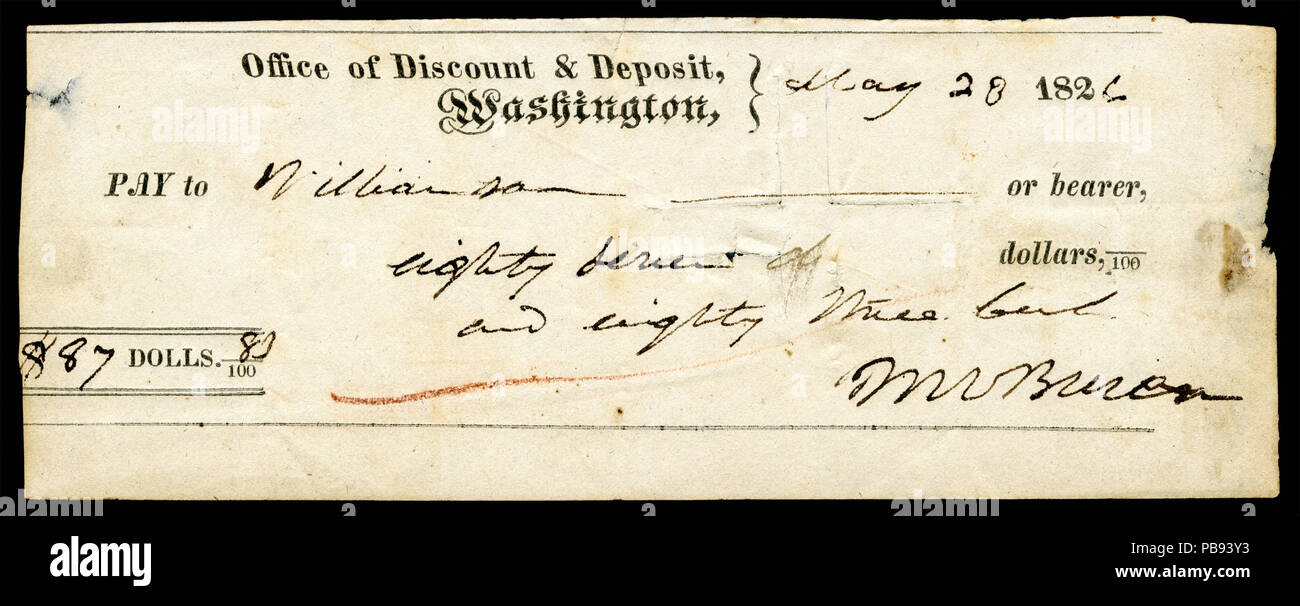 Office of Discount & Deposit,
Washington, } May 28 1826
PAY to Williamson or bearer,
eighty seven d dollars, /100
and eighty three Cent
$87 DOLLS. 83/100
MVBuren
alamy
www.alamy.com
Image ID: PB93Y3